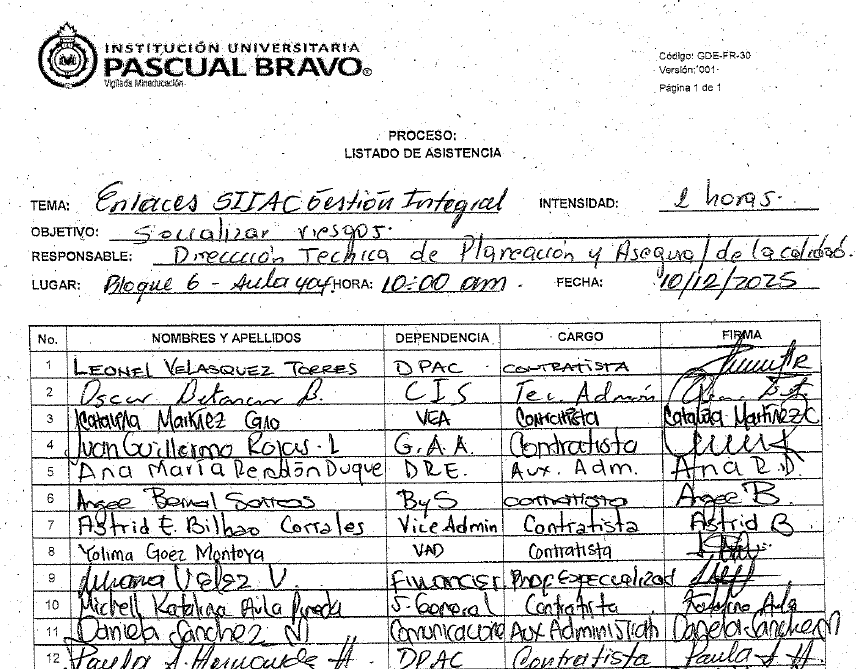 INSTITUCIÓN UNIVERSITARIA
PASCUAL BRAVO®
Vigilada Mineducación
Código: GDE-FR-30
Versión: 001
Página 1 de 1
PROCESO:
LISTADO DE ASISTENCIA
TEMA: Enlaces SIIAC Gestión Integral INTENSIDAD: horas.
OBJETIVO: Socializar riesgos.
RESPONSABLE: Dirección Tecnica de Planeación y Asegura/ de la calidad.
LUGAR: Bloque 6 - Aula HORA: 10:00 am. FECHA: 10/12/2025
No. NOMBRES Y APELLIDOS DEPENDENCIA CARGO FIRMA
1 LEONEL VELASQUEZ TORRES DPAC CONTRATISTA
2 Oscar Betancur B. CIS Tec. Admón
3 Catalina Martínez Cano VEA Contratista Catalina Martínez C
4 Juan Guillermo Rojas. L G.A.A. Contratista
5 Ana María Rendón Duque D.R.E. Aux. Adm. Ana R.D.
6 Angee Bernal ByS contratista Angee B.
7 Astrid E. Bilbao Corrales Vice Admin Contratista Astrid B
8 Yolima Goez Montoya VAD Contratista
9 Juliana Vélez V. Prof Especualizad
10 Michell Katalina Avila Pineda S. General Contratista Katalina Avila
11 Daniela Sánchez M Aux Daniela Sánchez M
12 Paula A. H. DPAC Contratista Paula A H